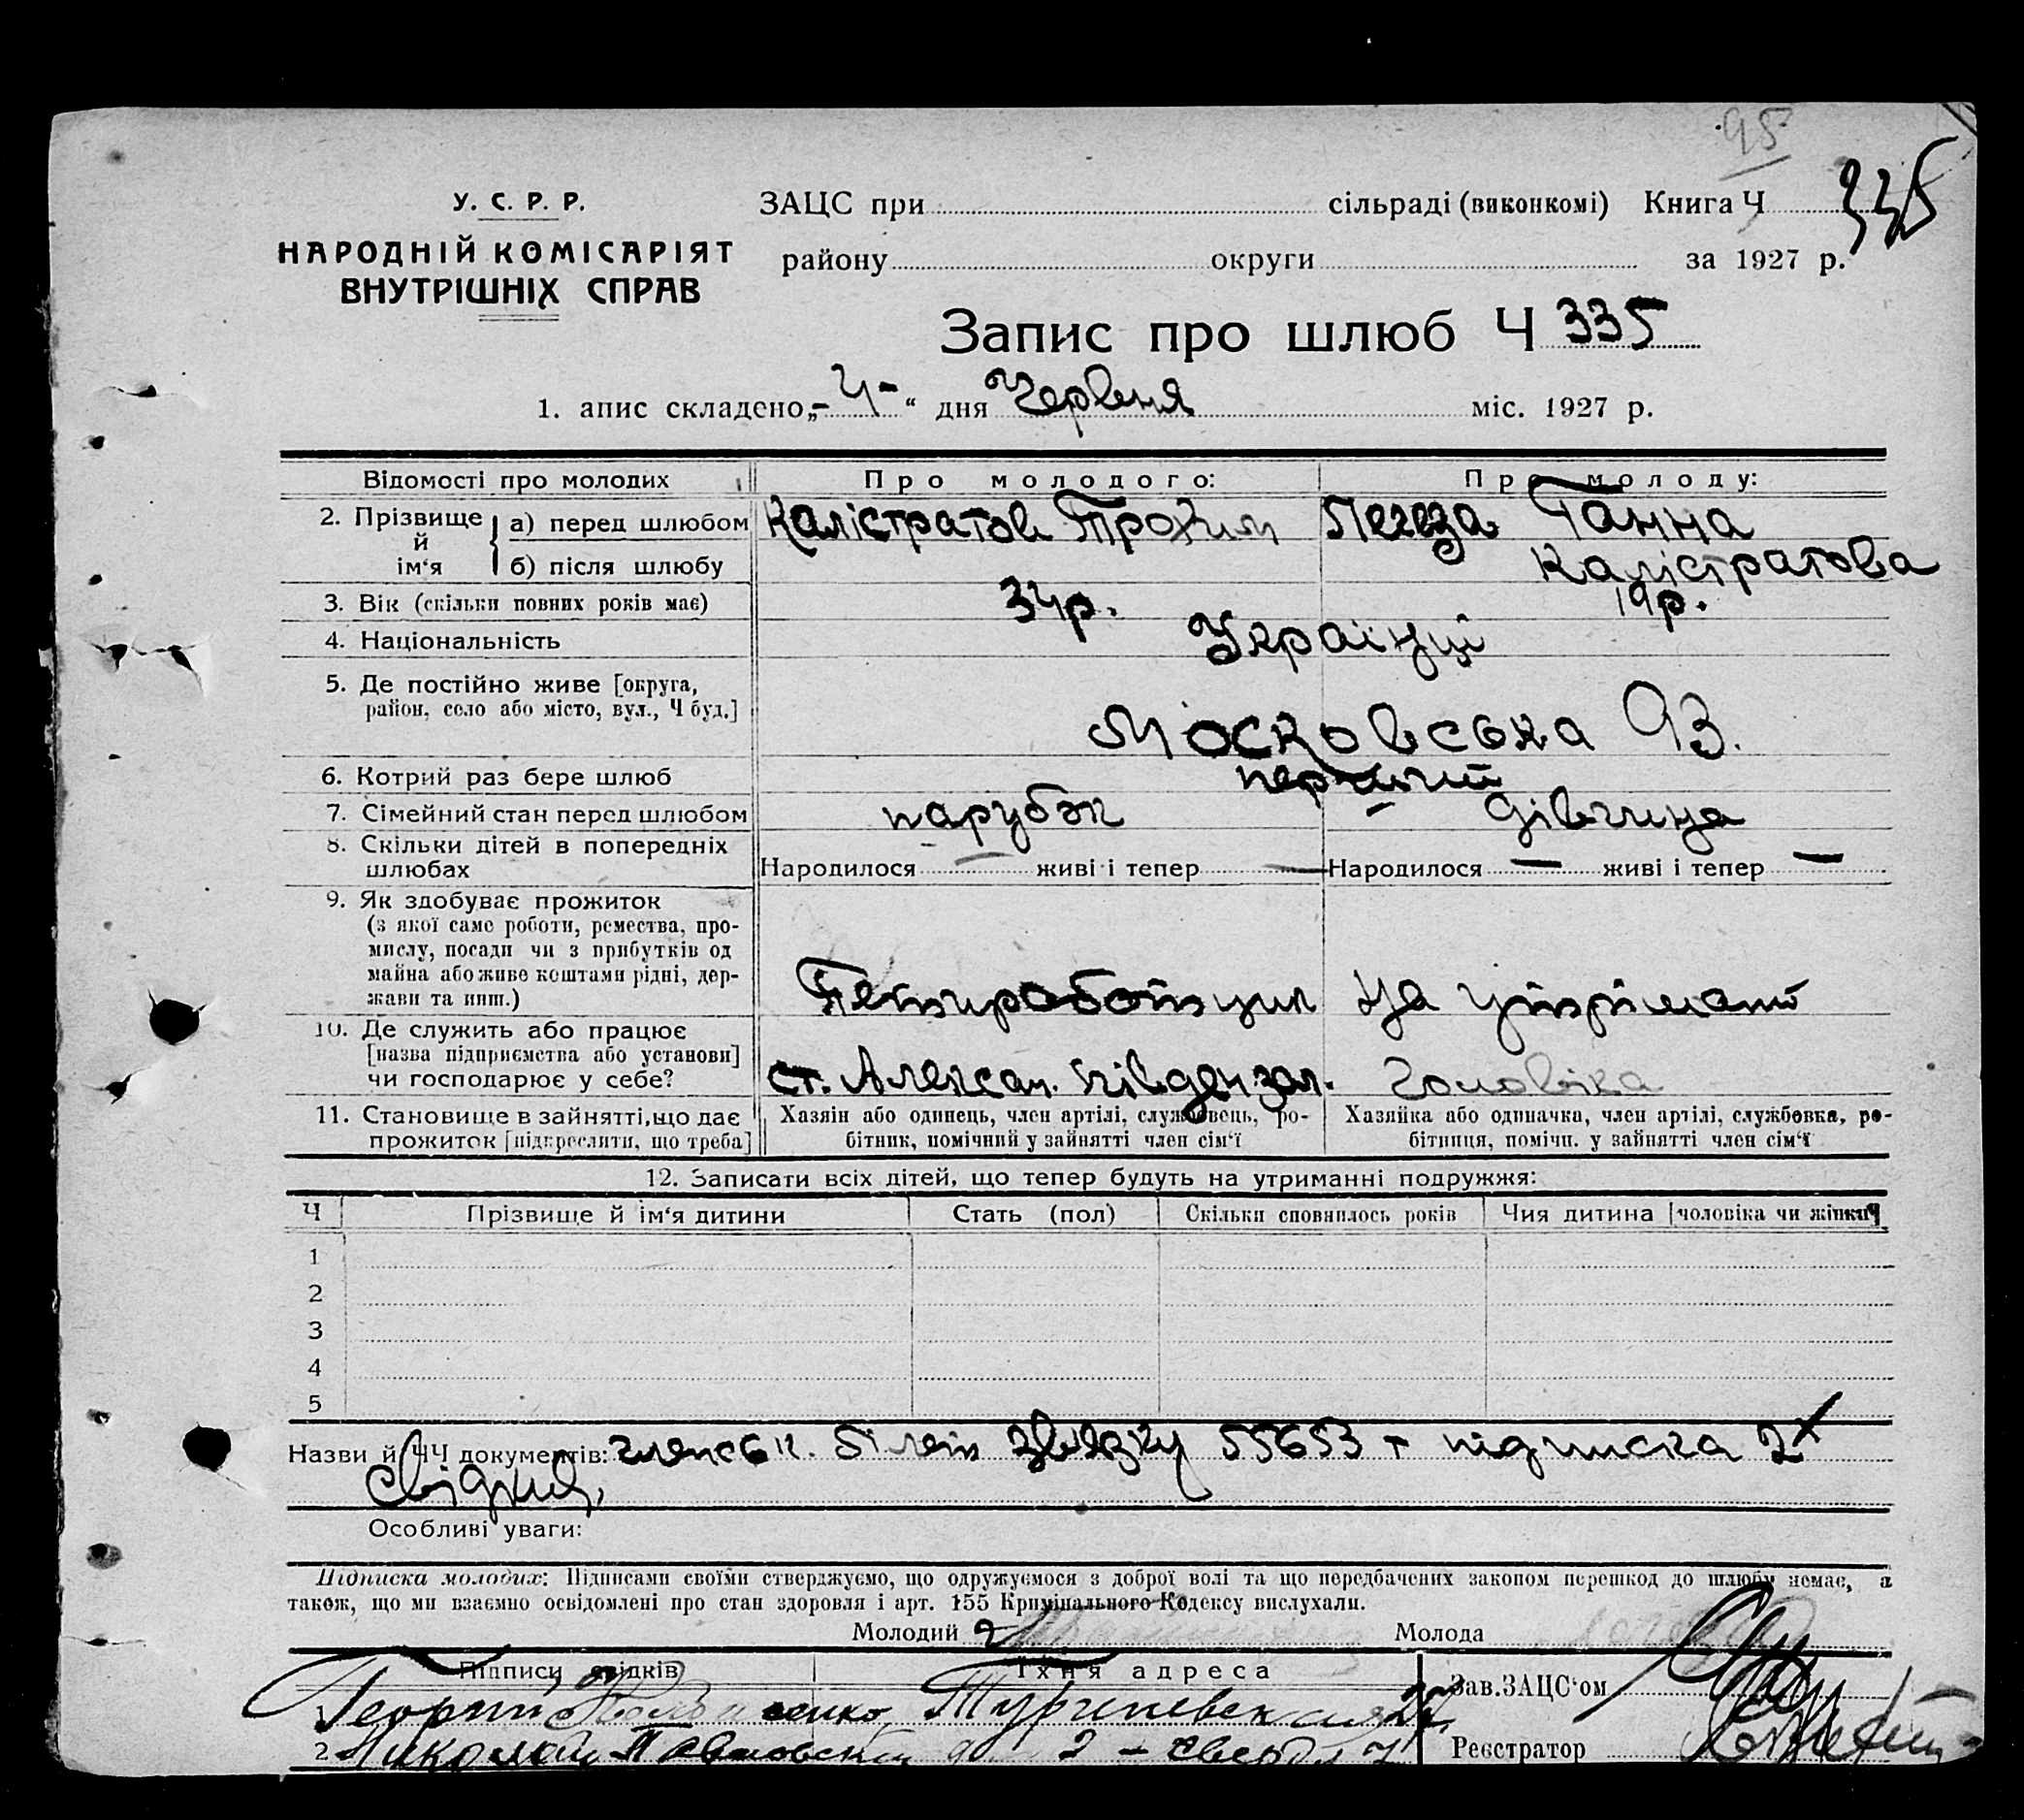 95
У. С. Р. Р.
НАРОДНІЙ КОМІСАРІЯТ
ВНУТРІШНІХ СПРАВ
ЗАЦС при сільраді (виконкомі) Книга Ч 335
району округи за 1927 р.
Запис про шлюб Ч 335
1. апис складено „-4-“ дня Червня міс. 1927 р.
Відомості про молодих Про молодого: Про молоду:
2. Прізвище й ім‘я а) перед шлюбом Калістратов Трохим Ганна
б) після шлюбу Калістратова
3. Вік (скільки повних років має) 34р. 19р.
4. Національність Українці
5. Де постійно живе [округа, район, село або місто, вул., Ч буд.] Московська 93.
6. Котрий раз бере шлюб перший
7. Сімейний стан перед шлюбом парубок дівчина
8. Скільки дітей в попередніх шлюбах Народилося — живі і тепер — Народилося — живі і тепер —
9. Як здобуває прожиток
(з якої саме роботи, ремества, про-
мислу, посади чи з прибутків од
майна або живе коштами рідні, дер-
жави та инш.) На утріманні
10. Де служить або працює
[назва підприємства або установи]
чи господарює у себе? ст. Алексан. Південзал. Чоловіка
11. Становище в зайнятті, що дає
прожиток [підкреслити, що треба]
Хазяін або одинець, член артілі, службовець, ро-
бітник, помічний у зайнятті член сім‘ї
Хазяйка або одиначка, член артілі, службовка, ро-
бітниця, помічн. у зайнятті член сім‘ї
12. Записати всіх дітей, що тепер будуть на утриманні подружжя:
Ч Прізвище й ім‘я дитини Стать (пол) Скільки сповнилось років Чия дитина [чоловіка чи жінки]
1
2
3
4
5
Назви й ЧЧ документів: членськ. білет звязку 55653 т підписка 2х
свідків,
Особливі уваги:
Підписка молодих: Підписами своїми стверджуємо, що одружуємося з доброї волі та що передбачених законом перешкод до шлюбу немає, а
також, що ми взаємно освідомлені про стан здоровля і арт. 155 Кримінального Кодексу вислухали.
Молодий Молода
Підписи свідків Їхня адреса Зав. ЗАЦС‘ом
1 Георгий
2 Николай Реєстратор